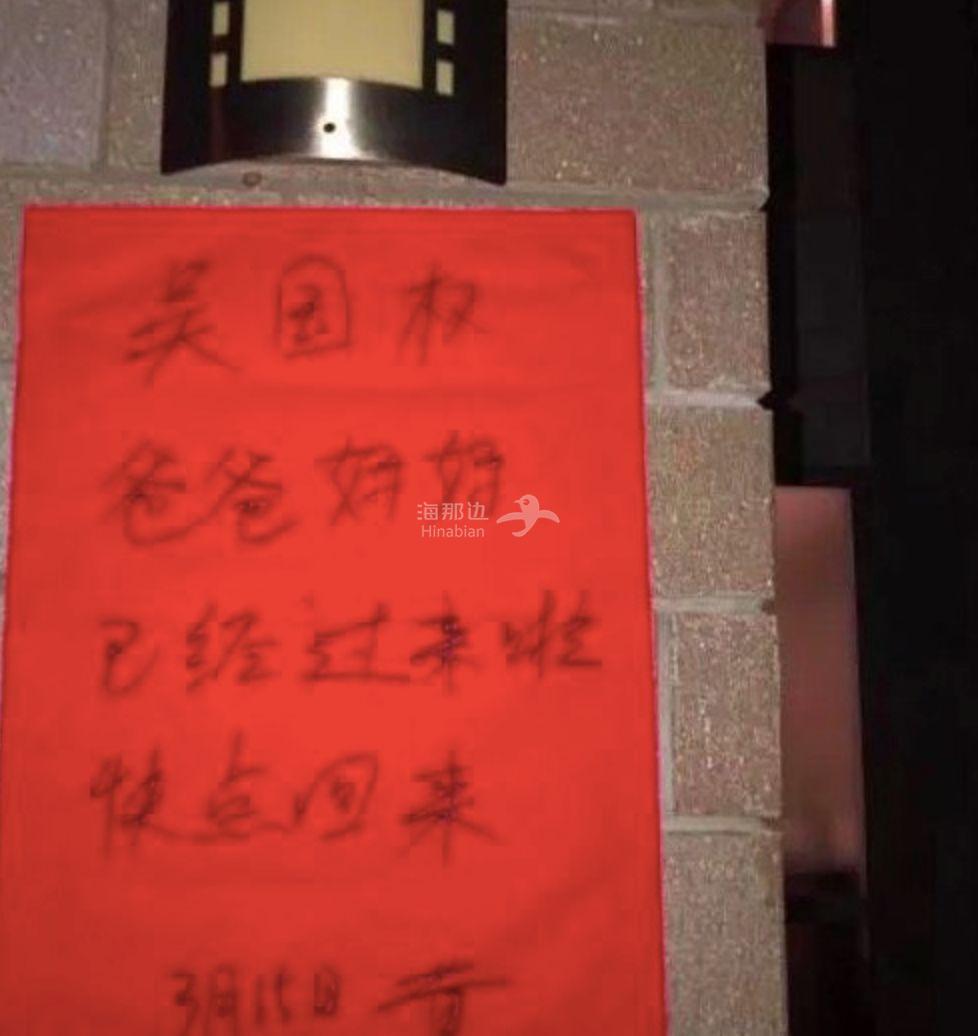 吴国权
爸爸妈妈
已经过来啦
快点回来
3月15日
海那边
Hinabian